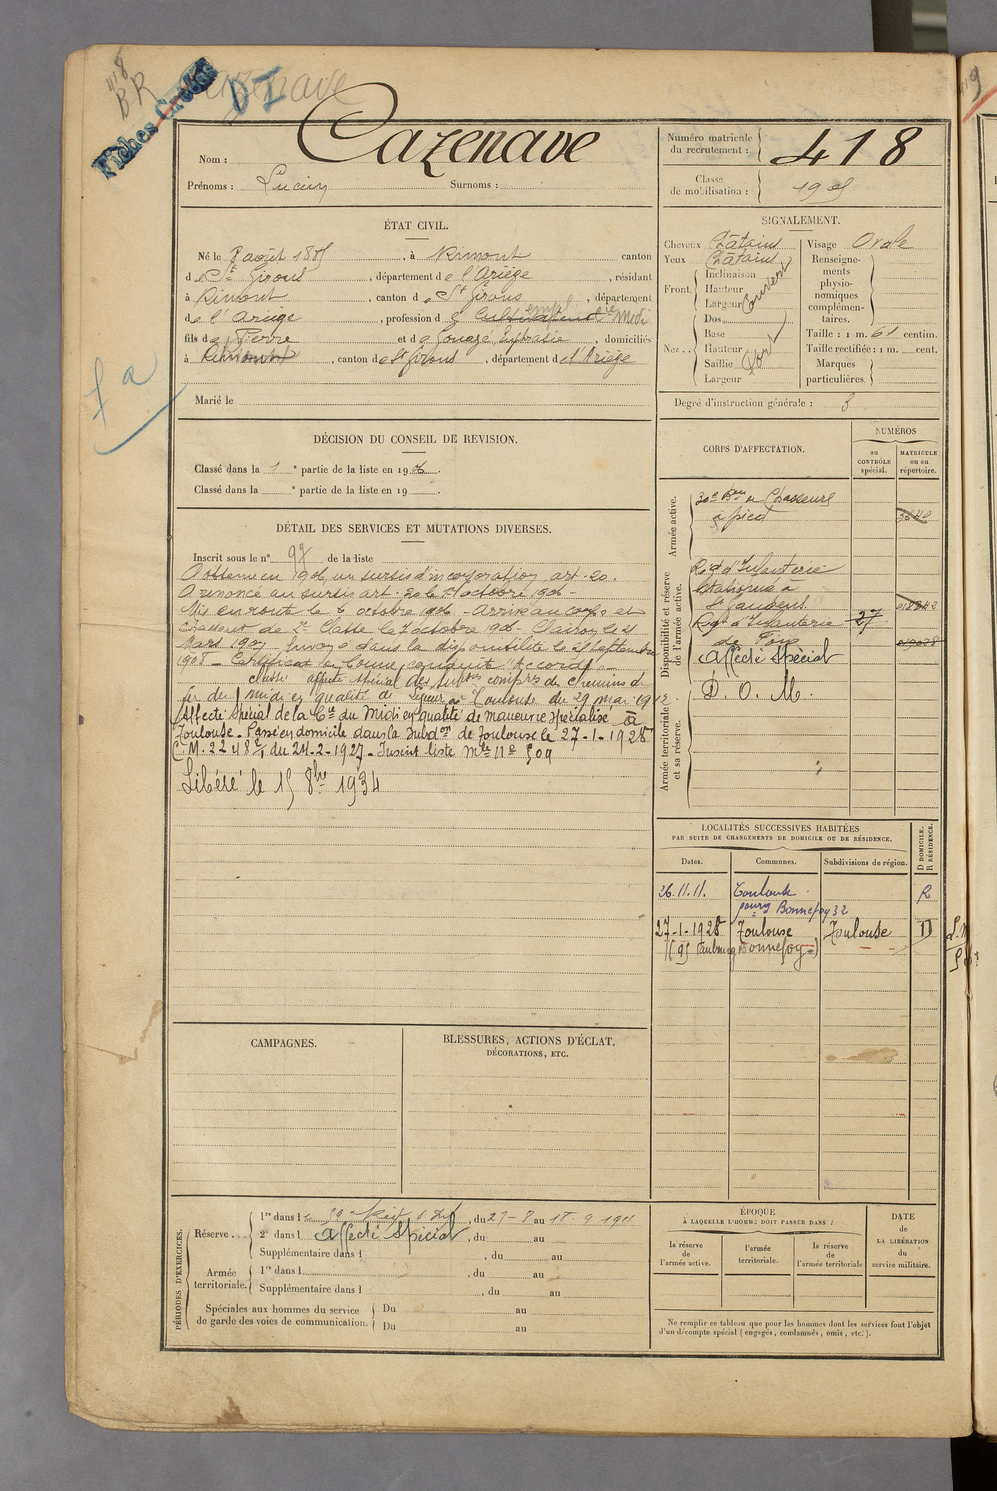 418
BR
Cazenave
DI
Fiches Créées
Nom : Cazenave
Prénoms : Lucien Surnoms :
Numéro matricule du recrutement : 418
Classe de mobilisation : 1905
ÉTAT CIVIL.
Né le 8 août 1885, à Rimont canton
de St Girons, département de l'Ariège, résidant
à Rimont, canton de St Girons, département
de l'Ariège, profession de cultivateur empl. Cie Midi
fils de Pierre et de Souage Euphrasie, domiciliés
à Rimont, canton de St Girons, département de l'Ariège
Marié le
fa
SIGNALEMENT.
Cheveux Châtains
Yeux Châtains
Front. Inclinaison Hauteur Largeur couvert
Nez. Dos Base Hauteur Saillie Largeur fort
Visage Ovale
Renseignements physionomiques complémentaires.
Taille : 1 m. 61 centim.
Taille rectifiée : 1 m. cent.
Marques particulières.
Degré d'instruction générale : 3
DÉCISION DU CONSEIL DE REVISION.
Classé dans la 1e partie de la liste en 1906.
Classé dans la e partie de la liste en 19 .
CORPS D'AFFECTATION.
NUMÉROS
au CONTRÔLE spécial.
MATRICULE ou au répertoire.
Armée active.
30e Bon de Chasseurs
à pied 3640
Disponibilité et réserve de l'armée active.
Rgt d'Infanterie
stationné à
St Gaudens
Rgt d'Infanterie 27
de Foix
Affecté Spécial
D. O. M.
Armée territoriale et sa réserve.
DÉTAIL DES SERVICES ET MUTATIONS DIVERSES.
Inscrit sous le n° 97 de la liste
A obtenu en 1906, un sursis d'incorporation art. 20.
A renoncé au sursis art. 20 le octobre 1906 -
Mis en route le 6 octobre 1906 - Arrivé au corps et
chasseur de 2e Classe le 7 octobre 1906 - Clairon le 21
Mars 1907 - Envoyé dans la disponibilité le 25 septembre
1908 - Certificat de bonne conduite "Accordé" -
Classé affecté spécial des subons complres de chemins de
fer du midi en qualité de à Toulouse du 29 mai 1912.
Affecté Spécial de la Cie du Midi en qualité de manœuvre spécialisé à
Toulouse - Passé en domicile dans la Subdon de Toulouse le 27-1-1928
C.M. 2248 2/1 du 24-2-1927 - Inscrit liste Mle n° 509
Libéré le 15 8bre 1934
LOCALITÉS SUCCESSIVES HABITÉES
PAR SUITE DE CHANGEMENTS DE DOMICILE OU DE RÉSIDENCE.
Dates. Communes. Subdivisions de région. D DOMICILE. R RÉSIDENCE.
26.11.11. Toulouse R
faurg Bonnefoy 32
27-1-1928 Toulouse Toulouse D
(95 Faubourg Bonnefoy)
CAMPAGNES.
BLESSURES, ACTIONS D'ÉCLAT,
DÉCORATIONS, ETC.
PÉRIODES D'EXERCICES.
Réserve . . . 1re dans le 59e Regt d'Inf, du 27-8 au 18-9 1911
2e dans l Affecté Spécial, du au
Supplémentaire dans l , du au
Armée territoriale. 1re dans l , du au
Supplémentaire dans l , du au
Spéciales aux hommes du service de garde des voies de communication. Du au
Du au
ÉPOQUE
À LAQUELLE L'HOMME DOIT PASSER DANS :
la réserve de l'armée active.
l'armée territoriale.
la réserve de l'armée territoriale
DATE DE LA LIBÉRATION du service militaire.
Ne remplir ce tableau que pour les hommes dont les services font l'objet
d'un décompte spécial (engagés, condamnés, omis, etc.).